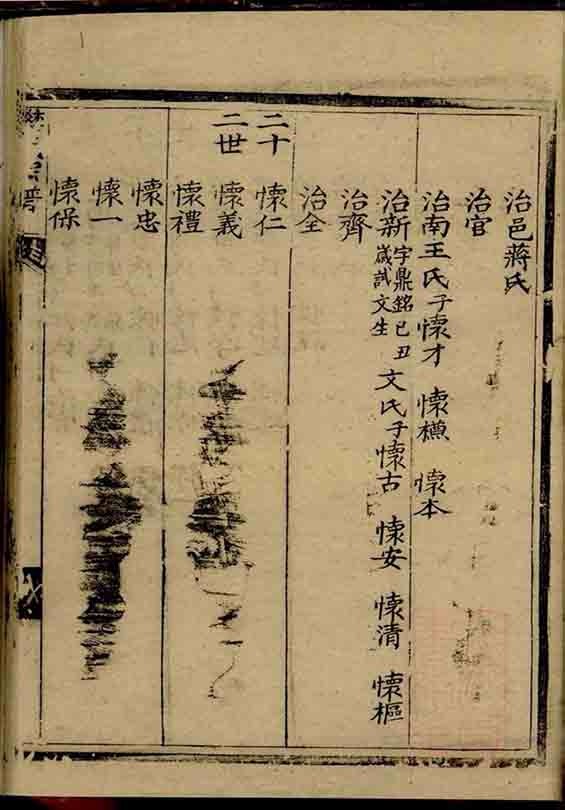 治邑蔣氏
治官
治南王氏子懷才 懷樵 懷本
治新字鼎銘己丑歲試文生文氏子懷古 懷安 懷清 懷樞
治齊
治全
二十二世
懷仁
懷義
懷禮
懷忠
懷一
懷保